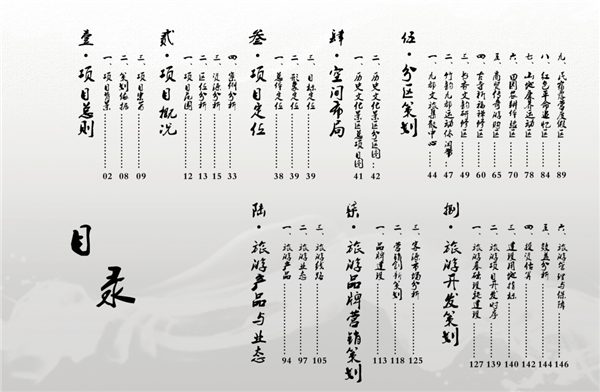 目录
壹·项目总则
一、项目背景 02
二、策划依据 08
09
贰·项目概况
一、项目范围 12
二、区位分析 13
三、资源分析 15
四、案例分析 33
叁·项目定位
一、总体定位 38
二、形象定位 39
三、目标定位 39
肆·空间布局
一、历史文化景区总项目图 41
二、历史文化景区分区图 42
伍·分区策划
一、九郎文旅集散中心 44
二、竹韵九郎运动休闲带 47
三、书香文韵研修区 49
四、古寺祈福禅修区 60
五、商贸传奇游购区 65
六、田园农耕体验区 70
七、山地康养运动区 78
八、红色革命追忆区 84
九、民宿康养度假区 89
陆·旅游产品与业态
一、旅游产品 94
二、旅游业态 97
三、旅游线路 105
柒·旅游品牌营销策划
一、品牌建设 113
二、营销创新策划 118
三、客源市场分析 125
捌·旅游开发策划
一、旅游基础设施建设 127
二、旅游项目开发时序 139
三、建设用地指标 140
四、投资估算 142
五、效益分析 144
六、旅游管理与保障 146